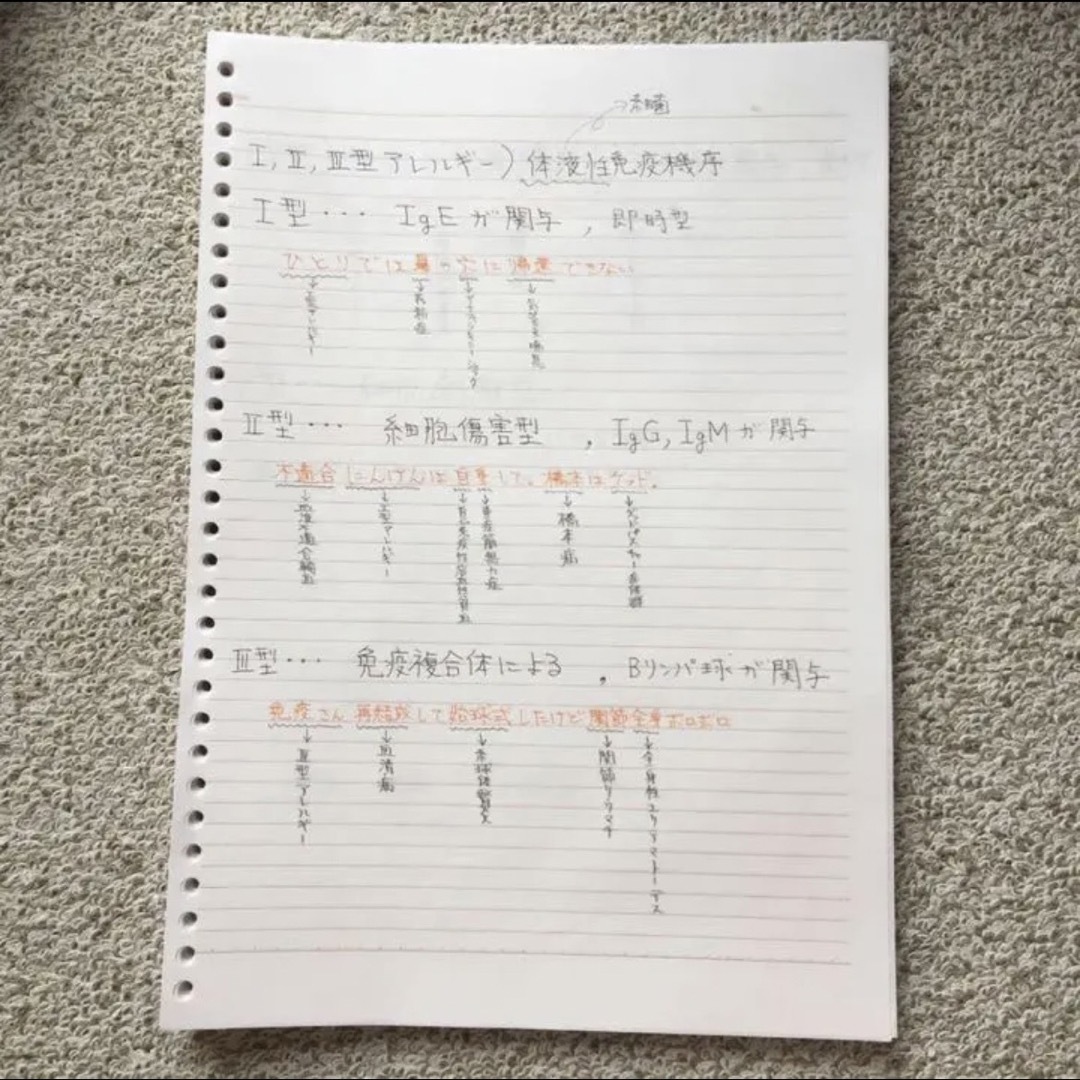 →細菌
Ⅰ,Ⅱ,Ⅲ型アレルギー）体液性免疫機序
Ⅰ型… IgEが関与，即時型
ひとりでは鼻の穴に帰還できない
→Ⅰ型アレルギー
→花粉症
→アナフィラキシーショック
→気管支喘息
Ⅱ型… 細胞傷害型，IgG,IgMが関与
不適合にんげんは自重して。橋本はグッド。
→血液不適合輸血
→Ⅱ型アレルギー
→自己免疫性溶血性貧血
→重症筋無力症
→橋本病
→グッドパスチャー症候群
Ⅲ型… 免疫複合体による，Bリンパ球が関与
免疫さん再結成して始球式したけど関節全身ボロボロ
→Ⅲ型アレルギー
→血清病
→糸球体腎炎
→関節リウマチ
→全身性エリテマトーデス